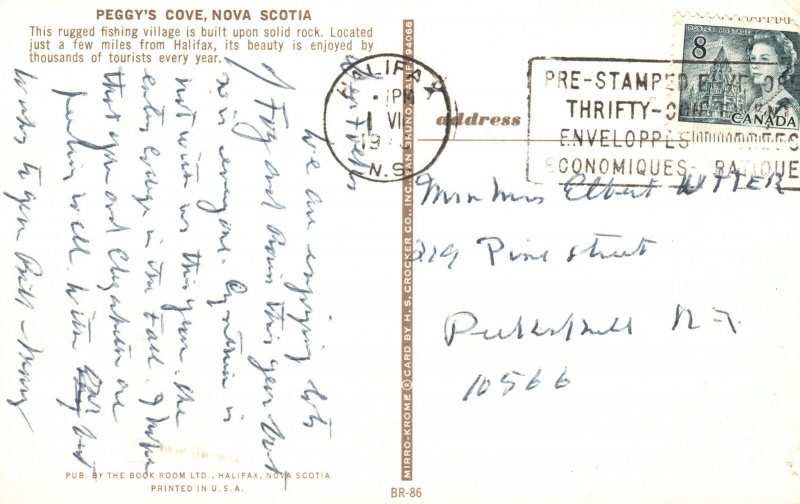 PEGGY'S COVE, NOVA SCOTIA
This rugged fishing village is built upon solid rock. Located
just a few miles from Halifax, its beauty is enjoyed by
thousands of tourists every year.
We are enjoying lots
of Fog and Rain this year but
so is everyone. Cynthia is
not with us this year. She
enters College in the Fall. I hope
that you and Elizabeth are
feeling well. With best
wishes to you Both -
PUB. BY THE BOOK ROOM LTD., HALIFAX, NOVA SCOTIA
PRINTED IN U.S.A.
MIRRO-KROME ® CARD BY H. S. CROCKER CO., INC., SAN BRUNO, CALIF. 94066
BR-86
HALIFAX
1 PM
1 VII
19
N.S.
PRE-STAMPED
THRIFTY-
ENVELOPPES
ECONOMIQUES-PRATIQUE
8
POSTES POSTAGE
CANADA
address
Mr Mrs Elbert WYTTER
219 Pine Street
Peekskill N.Y.
10566